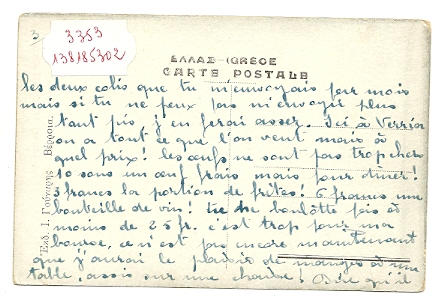 3
3353
138185302
ΕΛΛΑΣ-GRÈCE
CARTE POSTALE
Εκδ. Ι. Γούναρης Βέρροια.
les deux colis que tu m'envoyais par mois
mais si tu ne peux pas m'envoyer plus
tant pis j'en ferai assez. Ici à Verria
on a tout ce que l'on veut mais à
quel prix! les œufs ne sont pas trop chers
10 sous un œuf frais mais pour diner!
3 francs la portion de frites! 6 francs une
bouteille de vin! tu ne boulotte pas à
moins de 25 fr. c'est trop pour ma
bourse, ce n'est pas encore maintenant
que j'aurai le plaisir de manger à une
table, assis sur une chaise! Dire qu'il